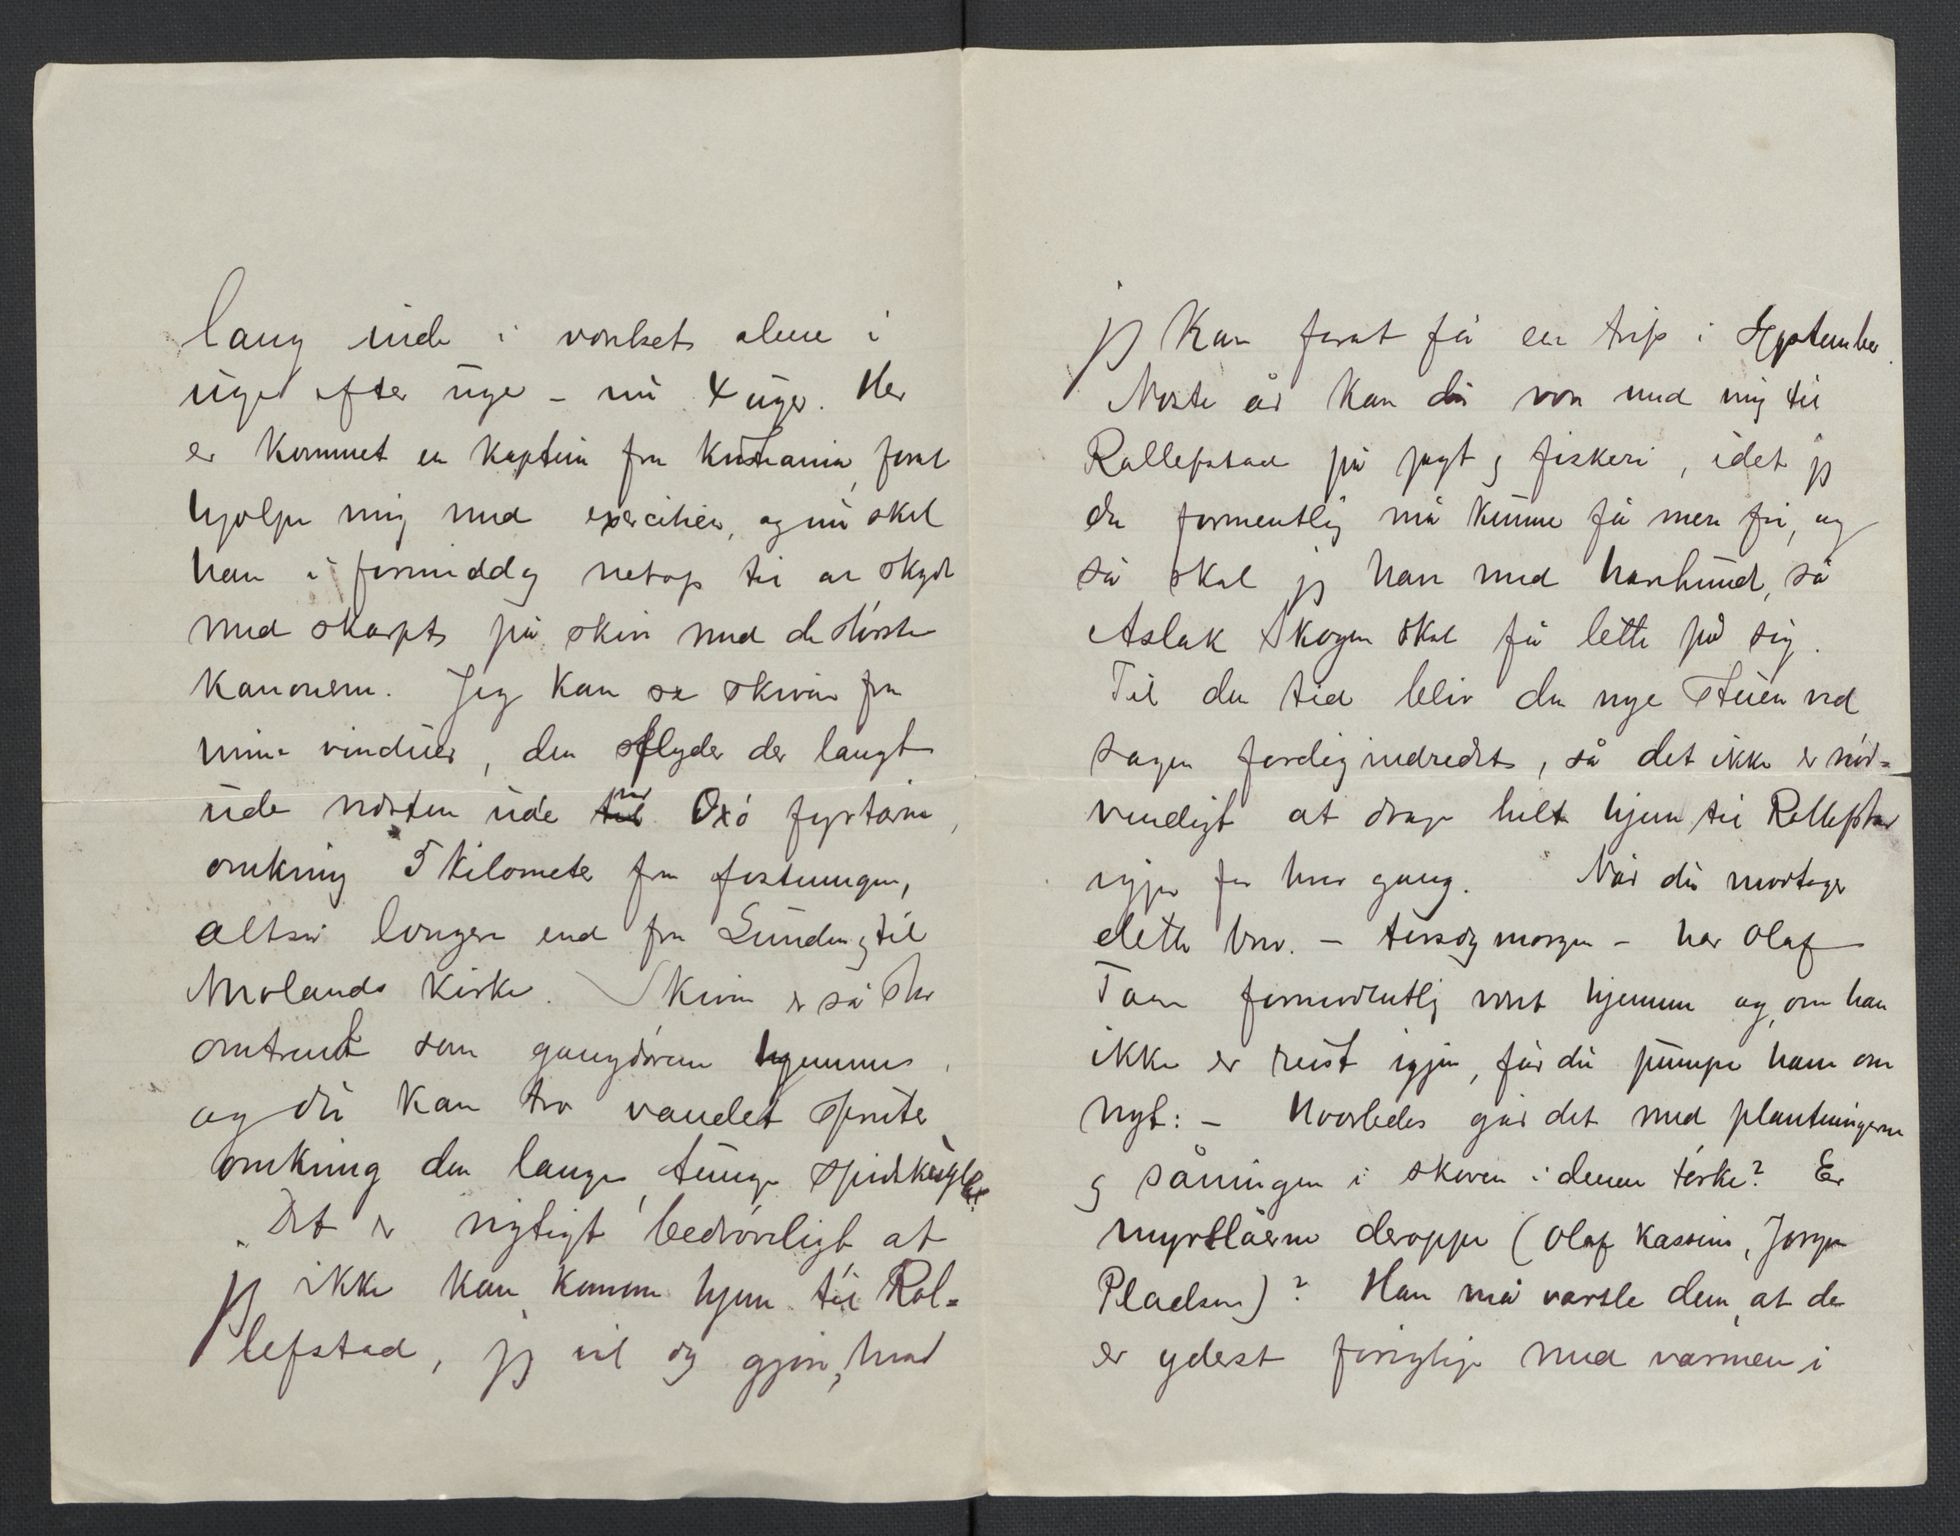 lang inde i værelset alene i
uge efter uge – nu 4 uger. Her
er kommet en kaptein fra Kristiania, forat
hjælpe mig med exercitien, og nu skal
han i formiddag netop til at skyde
med skarpt på skive med de største
kanonerne. Jeg kan se skiven fra
mine vinduer, den flyder der langt
ude næsten ude ved Oxö fyrtårn,
omkring 5 kilometer fra fæstningen,
altså længere end fra Sunding til
Molands kirke. Skiven er så stor
omtrent som gangdøren hjemme,
og du kan tro vandet spruter
omkring den lange, tunge spidskugle.
Det er rigtigt bedrøveligt at
jeg ikke kan komme hjem til Rol=
lefstad, jeg vil og gjøre, hvad
jeg kan forat få en trip i September.
Næste år kan du være med mig til
Rollefstad på jagt og fiskeri, idet jeg
da formentlig må kunne få mere fri, og
så skal jeg have med harehund, så
Aslak Skogen skal få lette på sig.
Til den tid bliver den nye Stuen ved
sagen færdig indredet, så det ikke er nød=
vendigt at drage helt hjem til Rollefstad
igjen for hver gang. Når du modtager
dette brev – tirsdag morgen – har Olaf
Tane formodentlig været hjemme og, om han
ikke er reist igjen, får du pumpe ham om
nyt: – Hvorledes går det med plantningerne
og såningen i skoven i denne tørke? Er
myrslåerne deroppe (Olaf Kassin, Jørgen
Pladsen)? Han må varsle dem, at det
er yderst farligt med varmen i